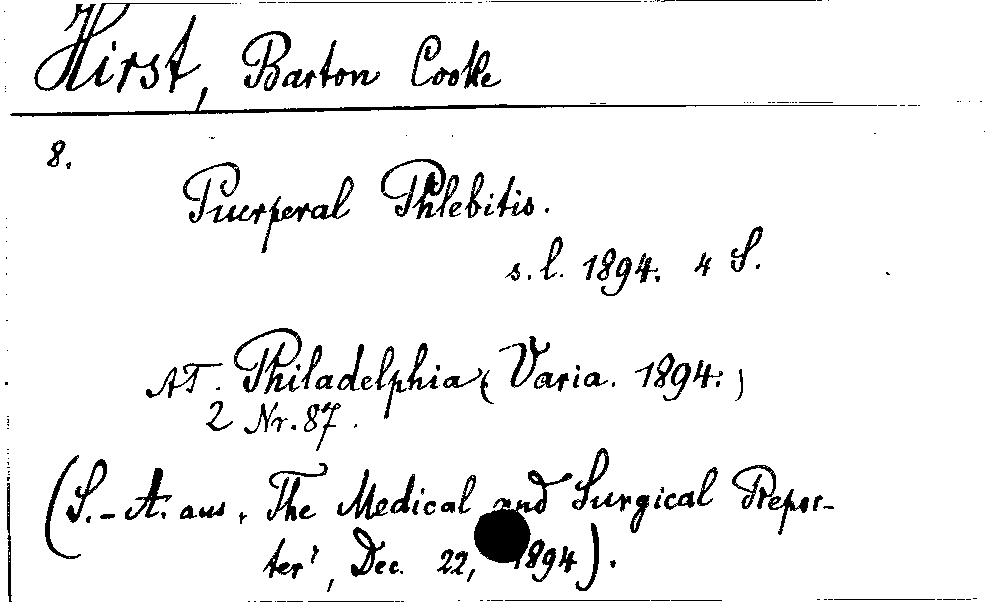 Hirst, Barton Cooke
8.
Puerperal Phlebitis.
s. l. 1894. 4 S.
AT. Philadelphia (Varia. 1894.)
2 Nr. 87.
(S.-A. aus, The Medical and Surgical Repor-
ter', Dec. 22, 1894).